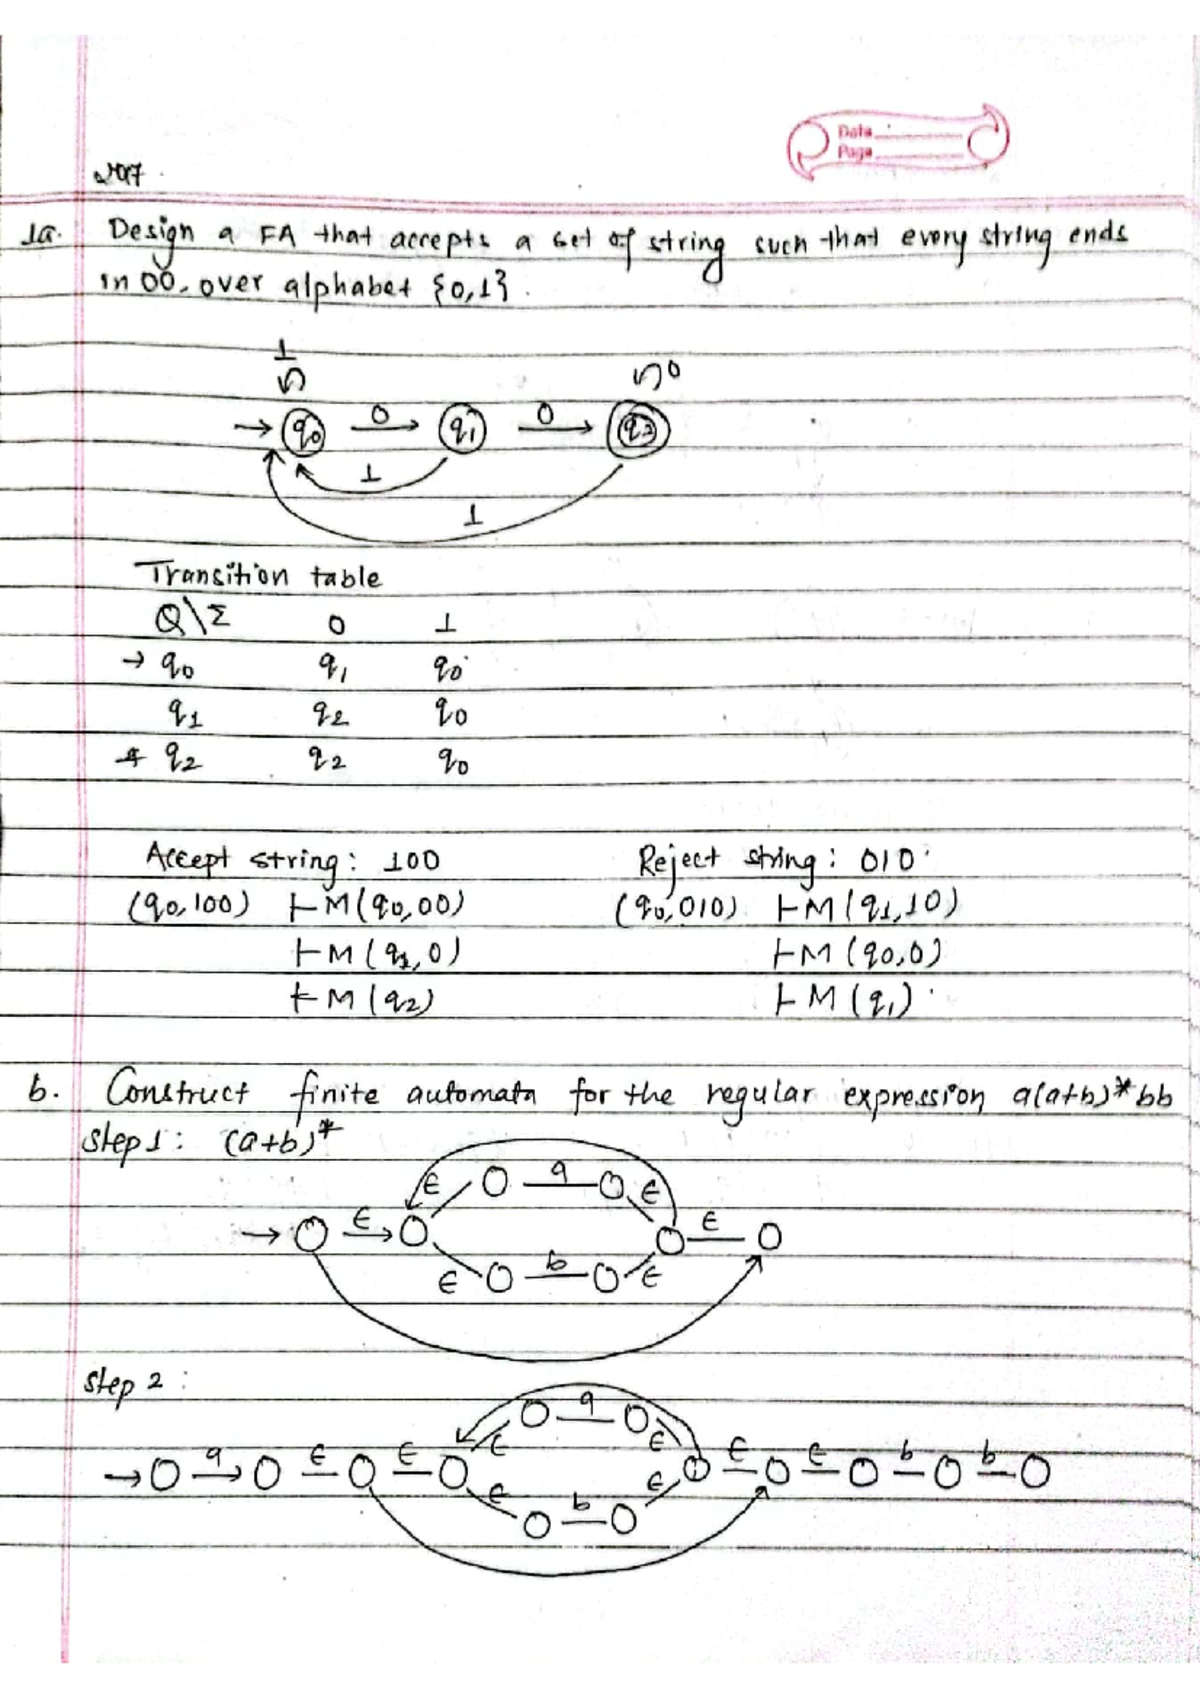 Date
Page
2017
1a. Design a FA that accepts a set of string such that every string ends
in 00, over alphabet {0,1}.
1 0
→ q0 0 q1 0 q2
1
1
Transition table
Q\Σ 0 1
→ q0 q1 q0
q1 q2 q0
* q2 q2 q0
Accept string: 100 Reject string: 010
(q0,100) ⊢M(q0,00) (q0,010) ⊢M(q1,10)
⊢M(q1,0) ⊢M(q0,0)
⊢M(q2) ⊢M(q1)
b. Construct finite automata for the regular expression a(a+b)*bb
step 1: (a+b)*
ϵ a ϵ
→ ϵ ϵ
ϵ b ϵ
step 2:
a
ϵ ϵ
→ a ϵ ϵ ϵ ϵ b b
ϵ b ϵ